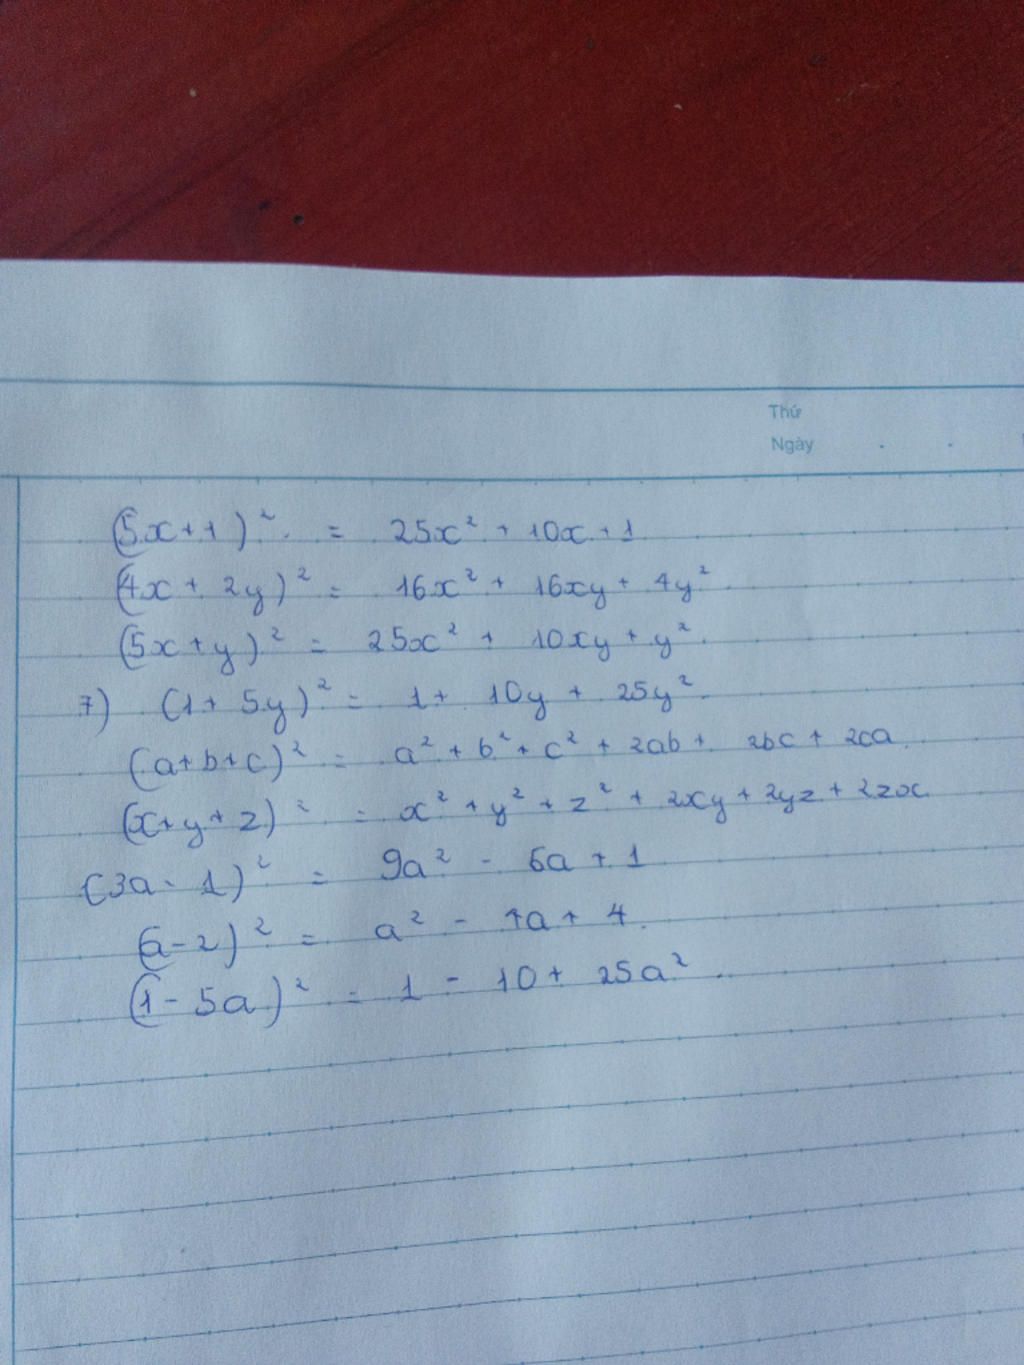 Thứ
Ngày
(5x+1)² = 25x² + 10x + 1
(4x + 2y)² = 16x² + 16xy + 4y²
(5x+y)² = 25x² + 10xy + y²
7) (1 + 5y)² = 1 + 10y + 25y²
(a+b+c)² = a² + b² + c² + 2ab + 2bc + 2ca
(x+y+z)² = x² + y² + z² + 2xy + 2yz + 2zx
(3a - 1)² = 9a² - 6a + 1
(a-2)² = a² - 4a + 4
(1 - 5a)² = 1 - 10 + 25a²